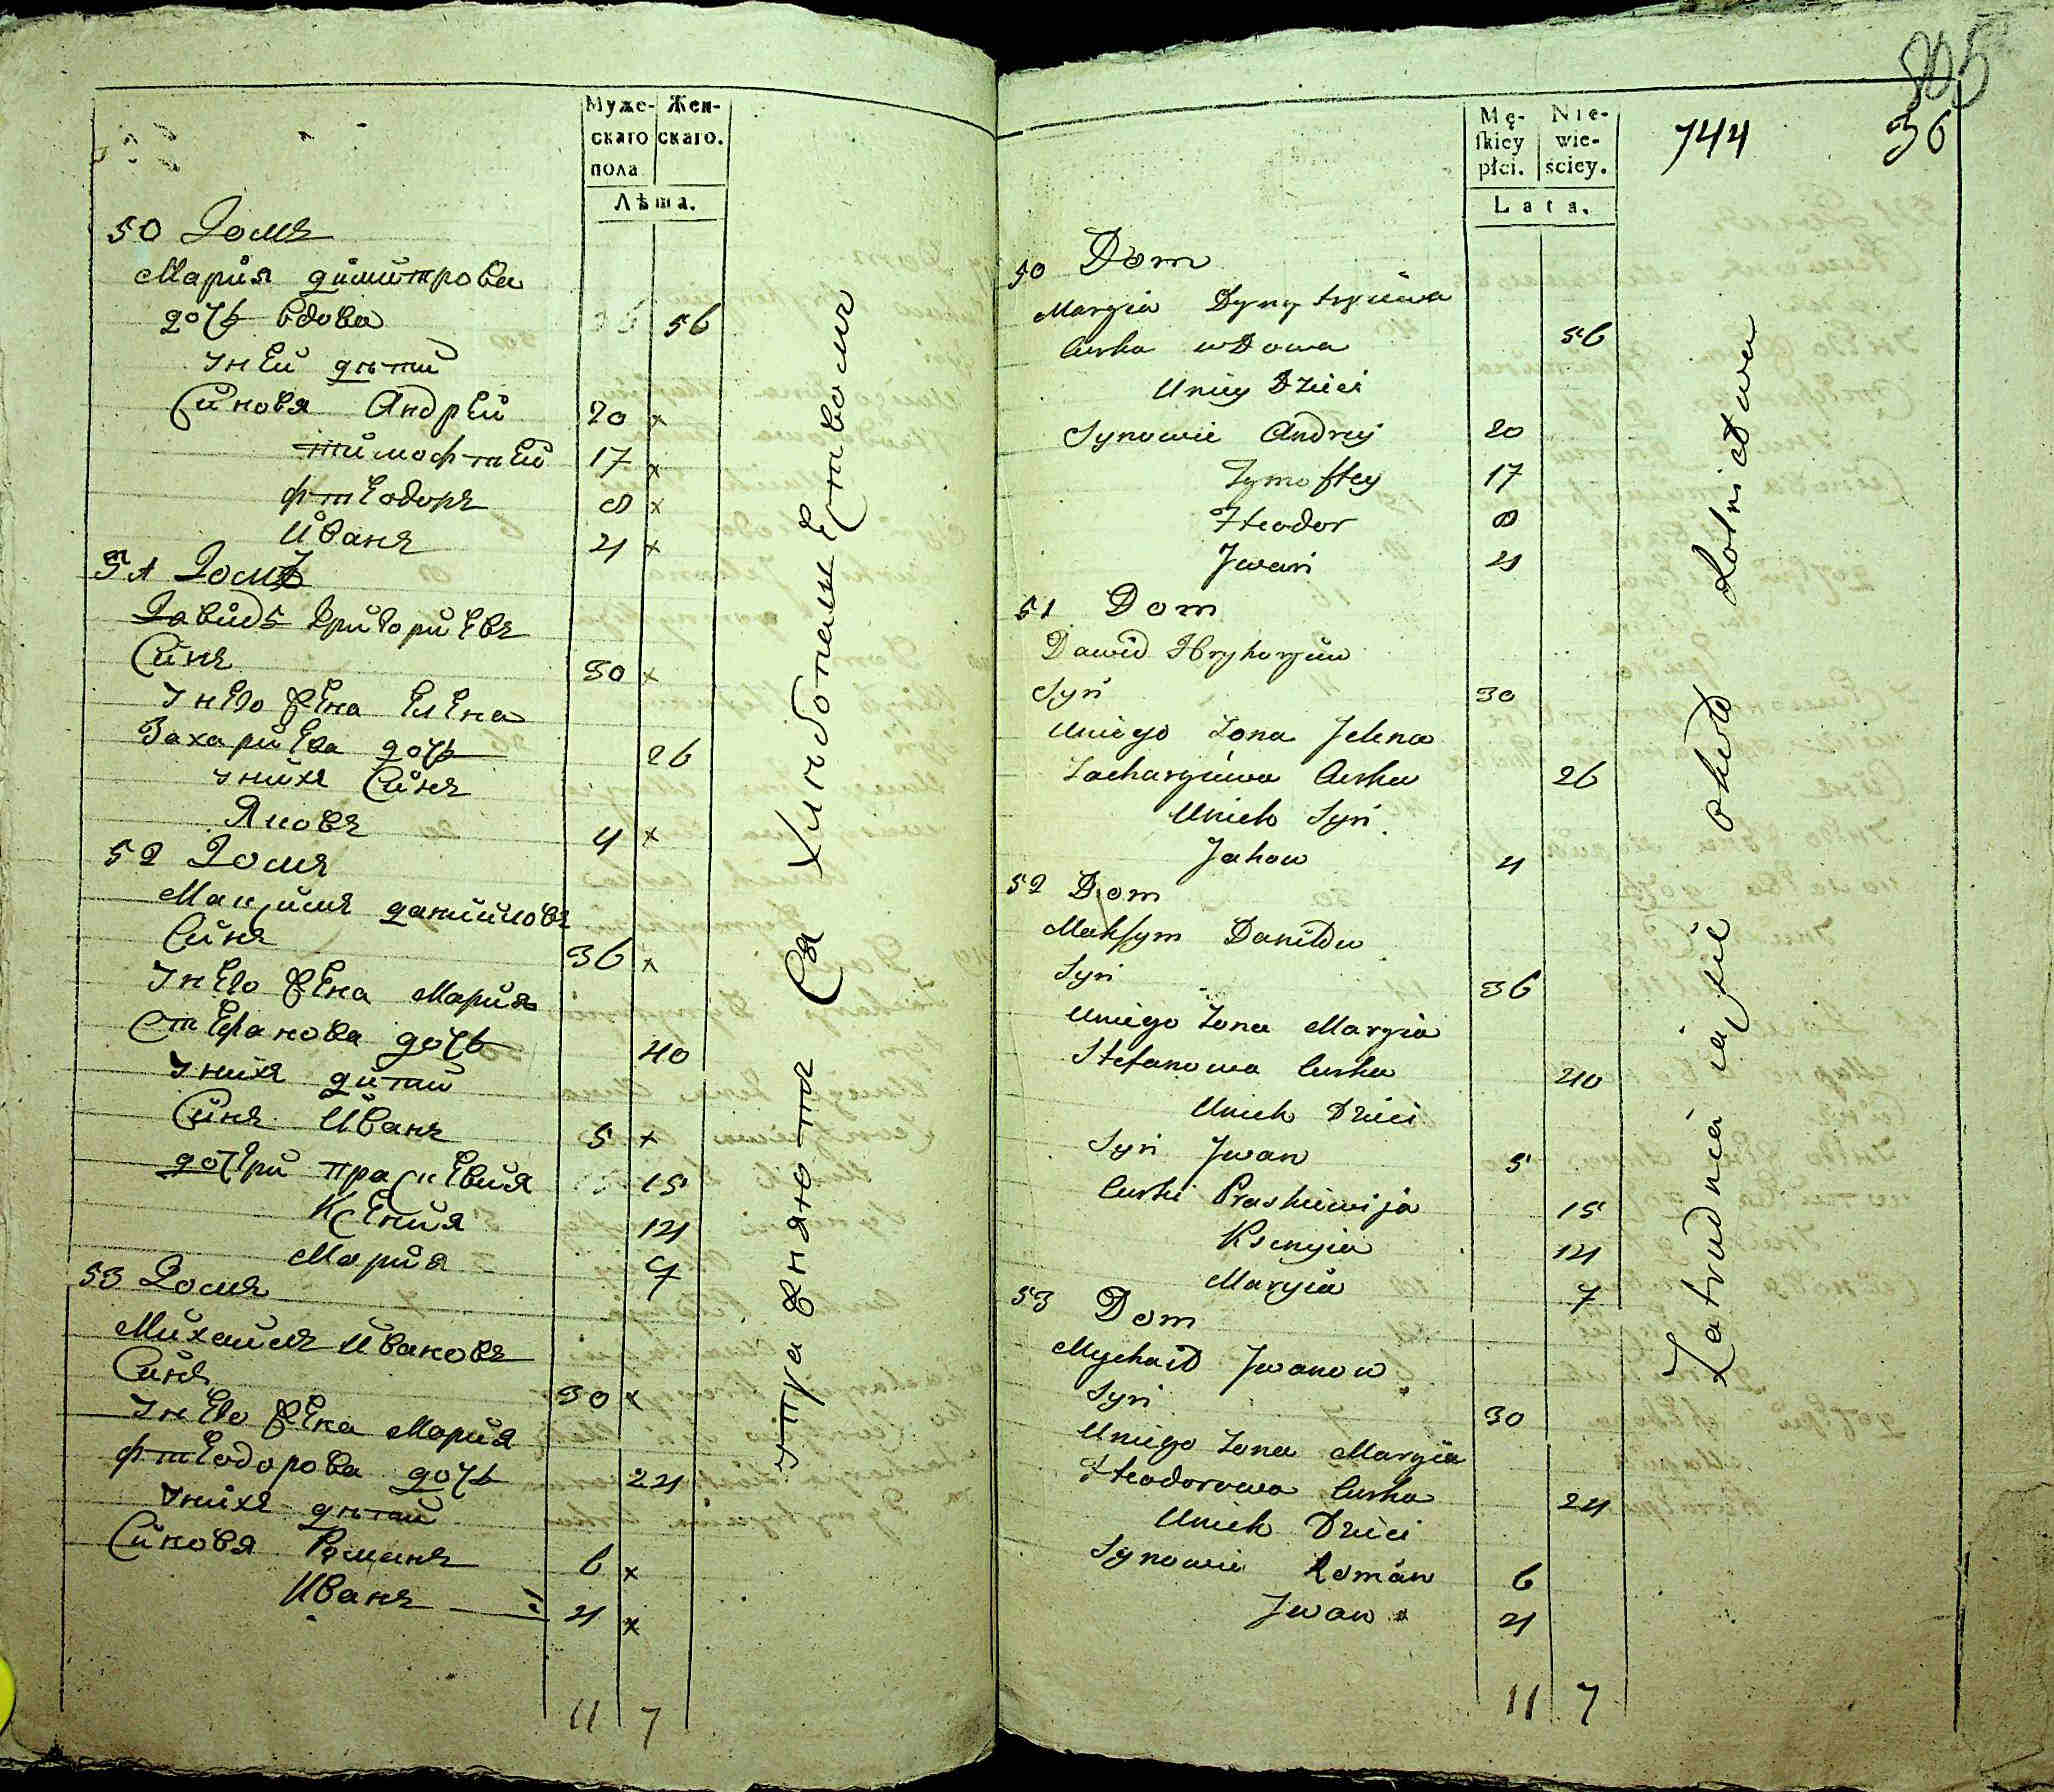 Муже- Жен-
скаго скаго.
пола
Лѣта.
50 Домъ
Мария димитрова
дочь вдова 56
Унеи дѣти
Синовя Андреи 20 x
тимофтеи 17 x
фтеодоръ 8 x
Иванъ 4 x
51 Домъ
Давидъ Григориевъ
Синъ 30 x
У него жена Елена
Захариева дочь 26
Унихъ Синъ
Яковъ 4 x
52 Домъ
Максимъ данииловъ
Синъ 36 x
У него жена Мария
Стефанова дочь 40
Унихъ дити
Синъ Иванъ 5 x
дочери праскевия 15
Ксения 14
Мария 7
53 Домъ
Михаилъ Ивановъ
Синъ 30 x
У него жена Мария
фтеодорова дочь 24
Унихъ дѣти
Синовя Романъ 6 x
Иванъ 4 x
11 7
упражняются Хлѣбопашеством
805
744 36
Mę- Nie-
skiey wie-
płci. ściey.
Lata.
50 Dom
Maryia Dymytryiewa
Curka wdowa 56
Uniey Dzieci
Synowie Andrey 20
Tymoftey 17
Fteodor 8
Jwan 4
51 Dom
Dawid Hryhoryiew
Syn 30
Uniego Zona Jelena
Zacharyiewa Curka 26
Unich Syn
Jakow 4
52 Dom
Maksym Daniłow
Syn 36
Uniego Zona Maryia
Stefanowa Curka 40
Unich Dzieci
Syn Jwan 5
Curki Praskiewija 15
Ksenyia 14
Maryia 7
53 Dom
Mychaił Jwanow
Syn 30
Uniego Zona Maryia
Fteodorowa Curka 24
Unich Dzieci
Synowie Roman 6
Jwan 4
11 7
Zatrudniaią się około Rolnictwa